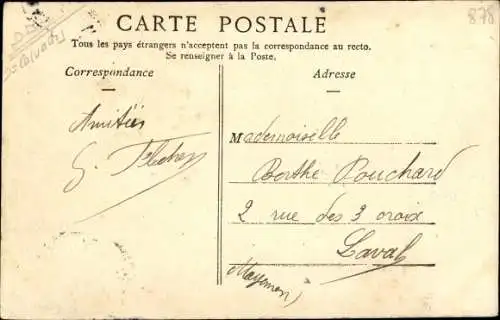 CARTE POSTALE
878
Tous les pays étrangers n'acceptent pas la correspondance au recto.
Se renseigner à la Poste.
Correspondance
Adresse
Amitiés
Mademoiselle
Berthe Pouchard
2 rue des 3 croix
Laval
(Mayenne)